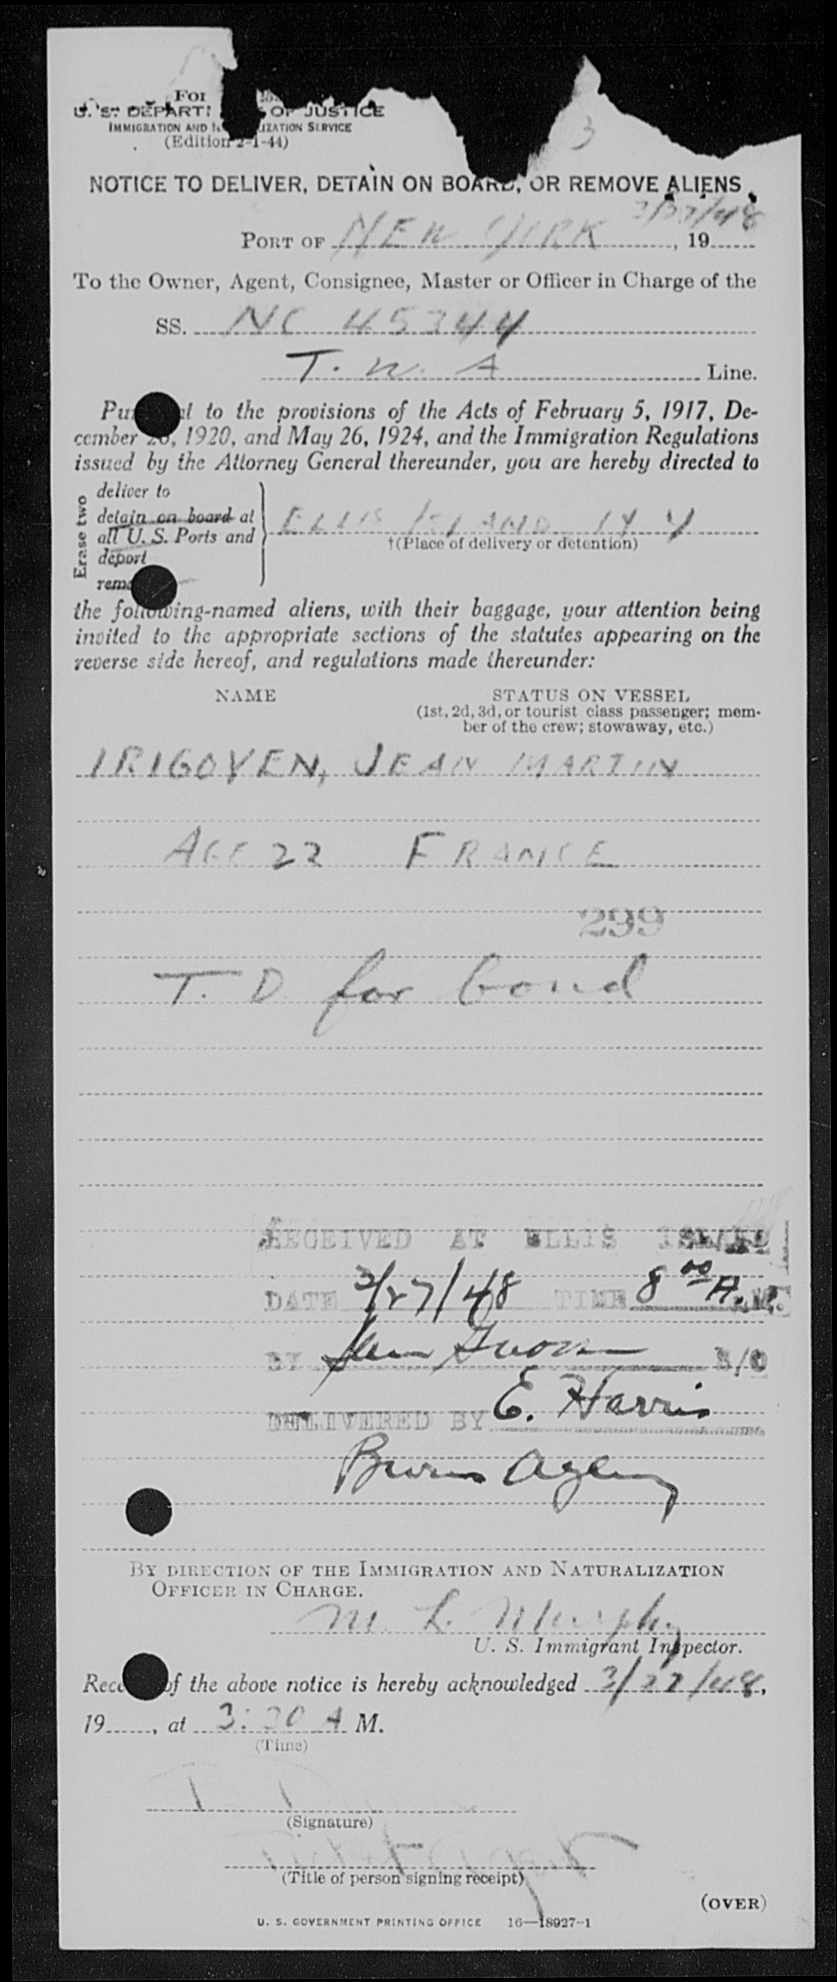 3
For
U. S. DEPART OF JUSTICE
IMMIGRATION AND N IZATION SERVICE
(Edition 2-1-44)
NOTICE TO DELIVER, DETAIN ON BOARD, OR REMOVE ALIENS
3/27/48
PORT OF NEW YORK, 19
To the Owner, Agent, Consignee, Master or Officer in Charge of the
SS. NC 45344
T. W. A Line.
Pu t to the provisions of the Acts of February 5, 1917, De-
cember 26, 1920, and May 26, 1924, and the Immigration Regulations
issued by the Attorney General thereunder, you are hereby directed to
Erase two
deliver to
detain on board at
all U. S. Ports and
deport
rem
ELLIS ISLAND N Y
†(Place of delivery or detention)
the following-named aliens, with their baggage, your attention being
invited to the appropriate sections of the statutes appearing on the
reverse side hereof, and regulations made thereunder:
NAME STATUS ON VESSEL
(1st, 2d, 3d, or tourist class passenger; mem-
ber of the crew; stowaway, etc.)
IRIGOYEN, JEAN MARTIN
AGE 22 FRANCE
299
T. D. for bond
RECEIVED AT ELLIS ISLAND
DATE 3/27/48 TIME 8 00 A. M.
BY
DELIVERED BY E. Harris
Burns Agency
BY DIRECTION OF THE IMMIGRATION AND NATURALIZATION
OFFICER IN CHARGE.
M. L. Murphy
U. S. Immigrant Inspector.
Rece of the above notice is hereby acknowledged 3/27/48,
19, at 3:30 A M.
(Time)
(Signature)
(Title of person signing receipt)
(OVER)
U. S. GOVERNMENT PRINTING OFFICE 16—18927-1